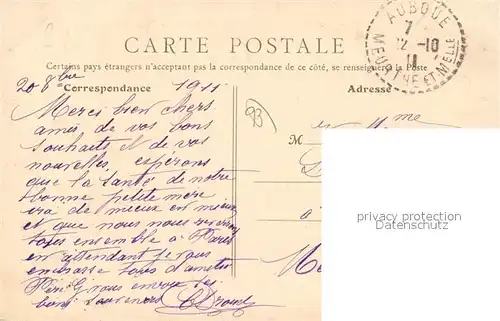 CARTE POSTALE
Certains pays étrangers n'acceptant pas la correspondance de ce côté, se renseigner à la Poste
Correspondance
Adresse
20 8bre 1911
AUBOUÉ
7
12 -10
11
MEURTHE ET MELLE
Merci bien chers
amis, de vos bons
souhaits et de vos
nouvelles, espérons
que la santé de notre
bonne petite mère
ira de mieux en mieux
et que nous nous
tous ensemble à Paris
en attendant je vous
embrasse tous
nous envoie ses
bons souvenirs
M
à
privacy protection
Datenschutz